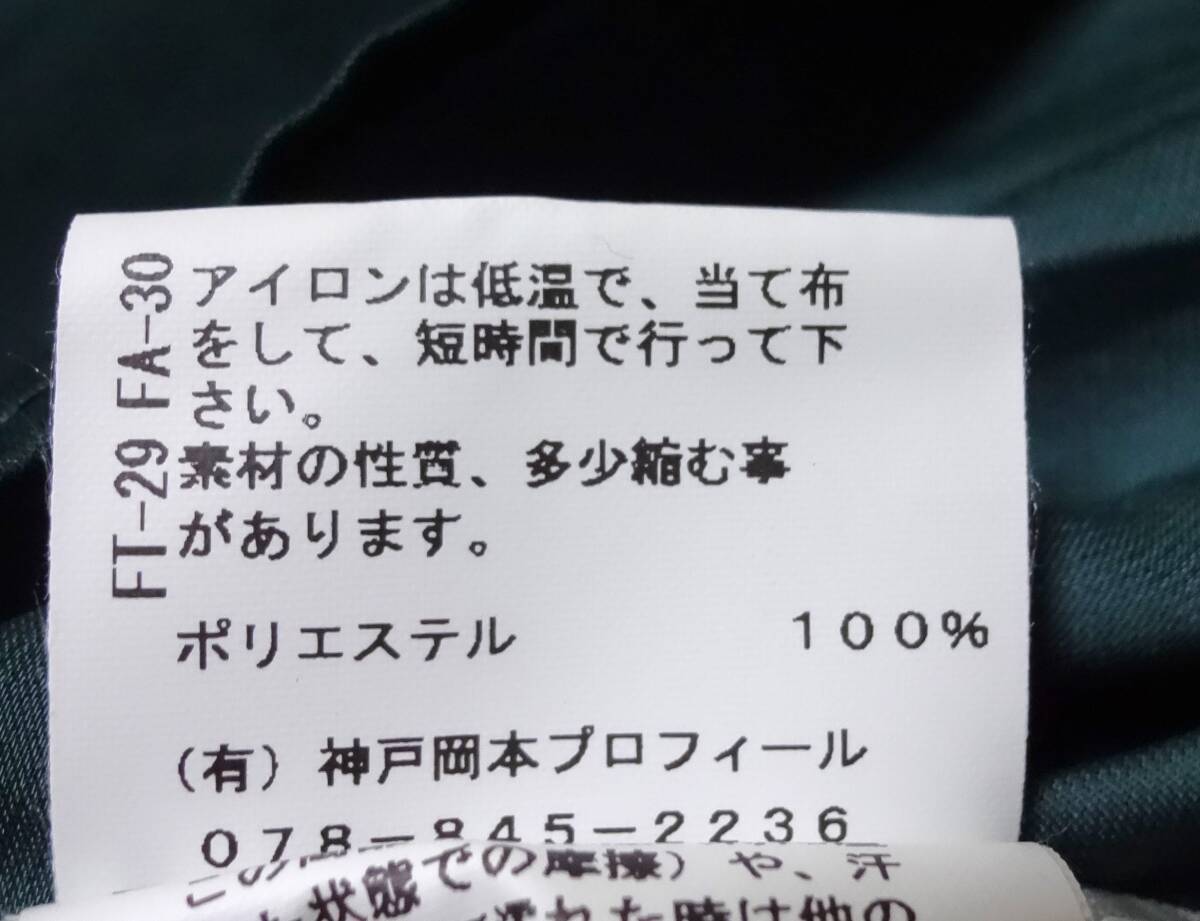 アイロンは低温で、当て布
をして、短時間で行って下
さい。
素材の性質、多少縮む事
があります。
ポリエステル 100%
(有)神戸岡本プロフィール
078-845-2236
FT-29 FA-30
状態での摩擦)や、汗
れた時は他の